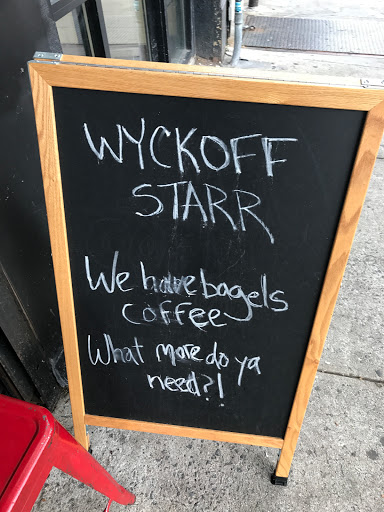 WYCKOFF
STARR
We have bagels
coffee
What more do ya
need?!